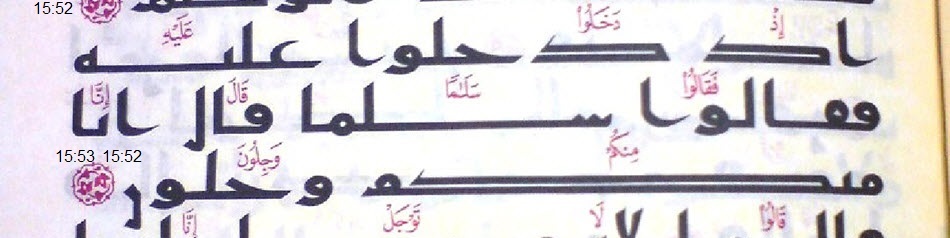 15:52
إِذْ دَخَلُوا عَلَيْهِ
اد دحلوا علىه
فَقَالُوا سَلَـٰمًا قَالَ إِنَّا
ففالوا سلما فال انا
15:53 15:52
مِنكُمْ وَجِلُونَ
مىكم وحلور
قَالُوا لَا تَوْجَلْ إِنَّا